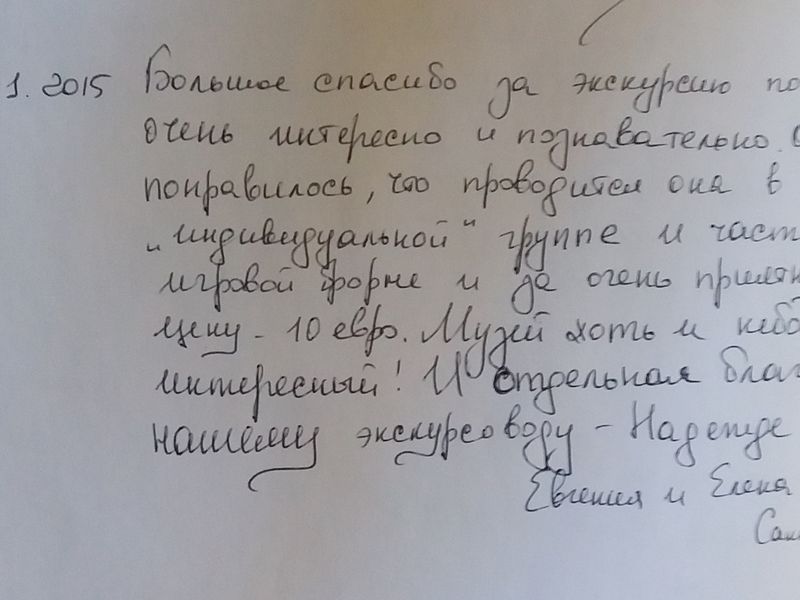 1. 2015 Большое спасибо за экскурсию по
очень интересно и познавательно.
понравилось, что проводится она в
„индивидуальной“ группе и част
игровой форме и за очень приятн
цену - 10 евро. Музей хоть и небо
интересный! И отдельная благ
нашему экскурсоводу - Надежде
Евгения и Елена
Сан